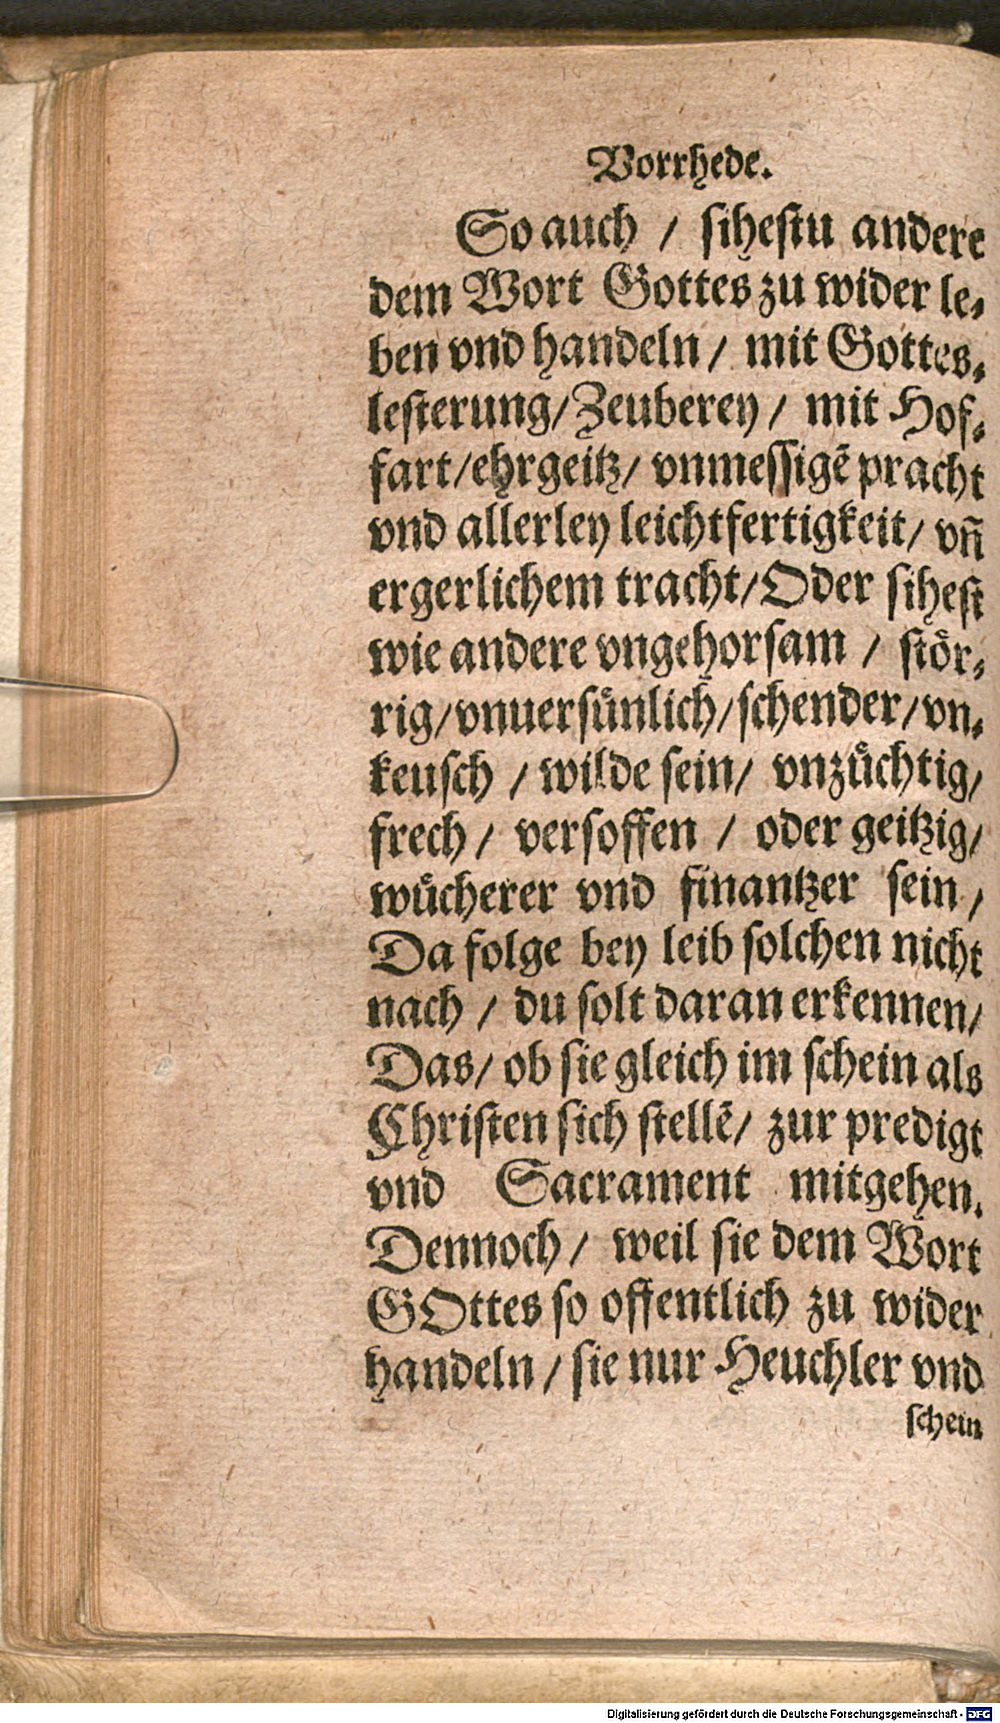 Vorrhede.
So auch / sihestu andere
dem Wort Gottes zu wider le-
ben vnd handeln / mit Gottes-
lesterung/Zeuberey / mit Hof-
fart/ehrgeitz/ vnmessigẽ pracht
vnd allerley leichtfertigkeit/ vñ
ergerlichem tracht/Oder sihest
wie andere vngehorsam / stoͤr-
rig/vnuersuͤnlich/schender/vn-
keusch / wilde sein/ vnzuͤchtig/
frech / versoffen / oder geitzig/
wuͤcherer vnd finantzer sein /
Da folge bey leib solchen nicht
nach / du solt daran erkennen/
Das/ ob sie gleich im schein als
Christen sich stellẽ/ zur predigt
vnd Sacrament mitgehen.
Dennoch / weil sie dem Wort
GOttes so offentlich zu wider
handeln / sie nur Heuchler vnd
schein
Digitalisierung gefördert durch die Deutsche Forschungsgemeinschaft - DFG